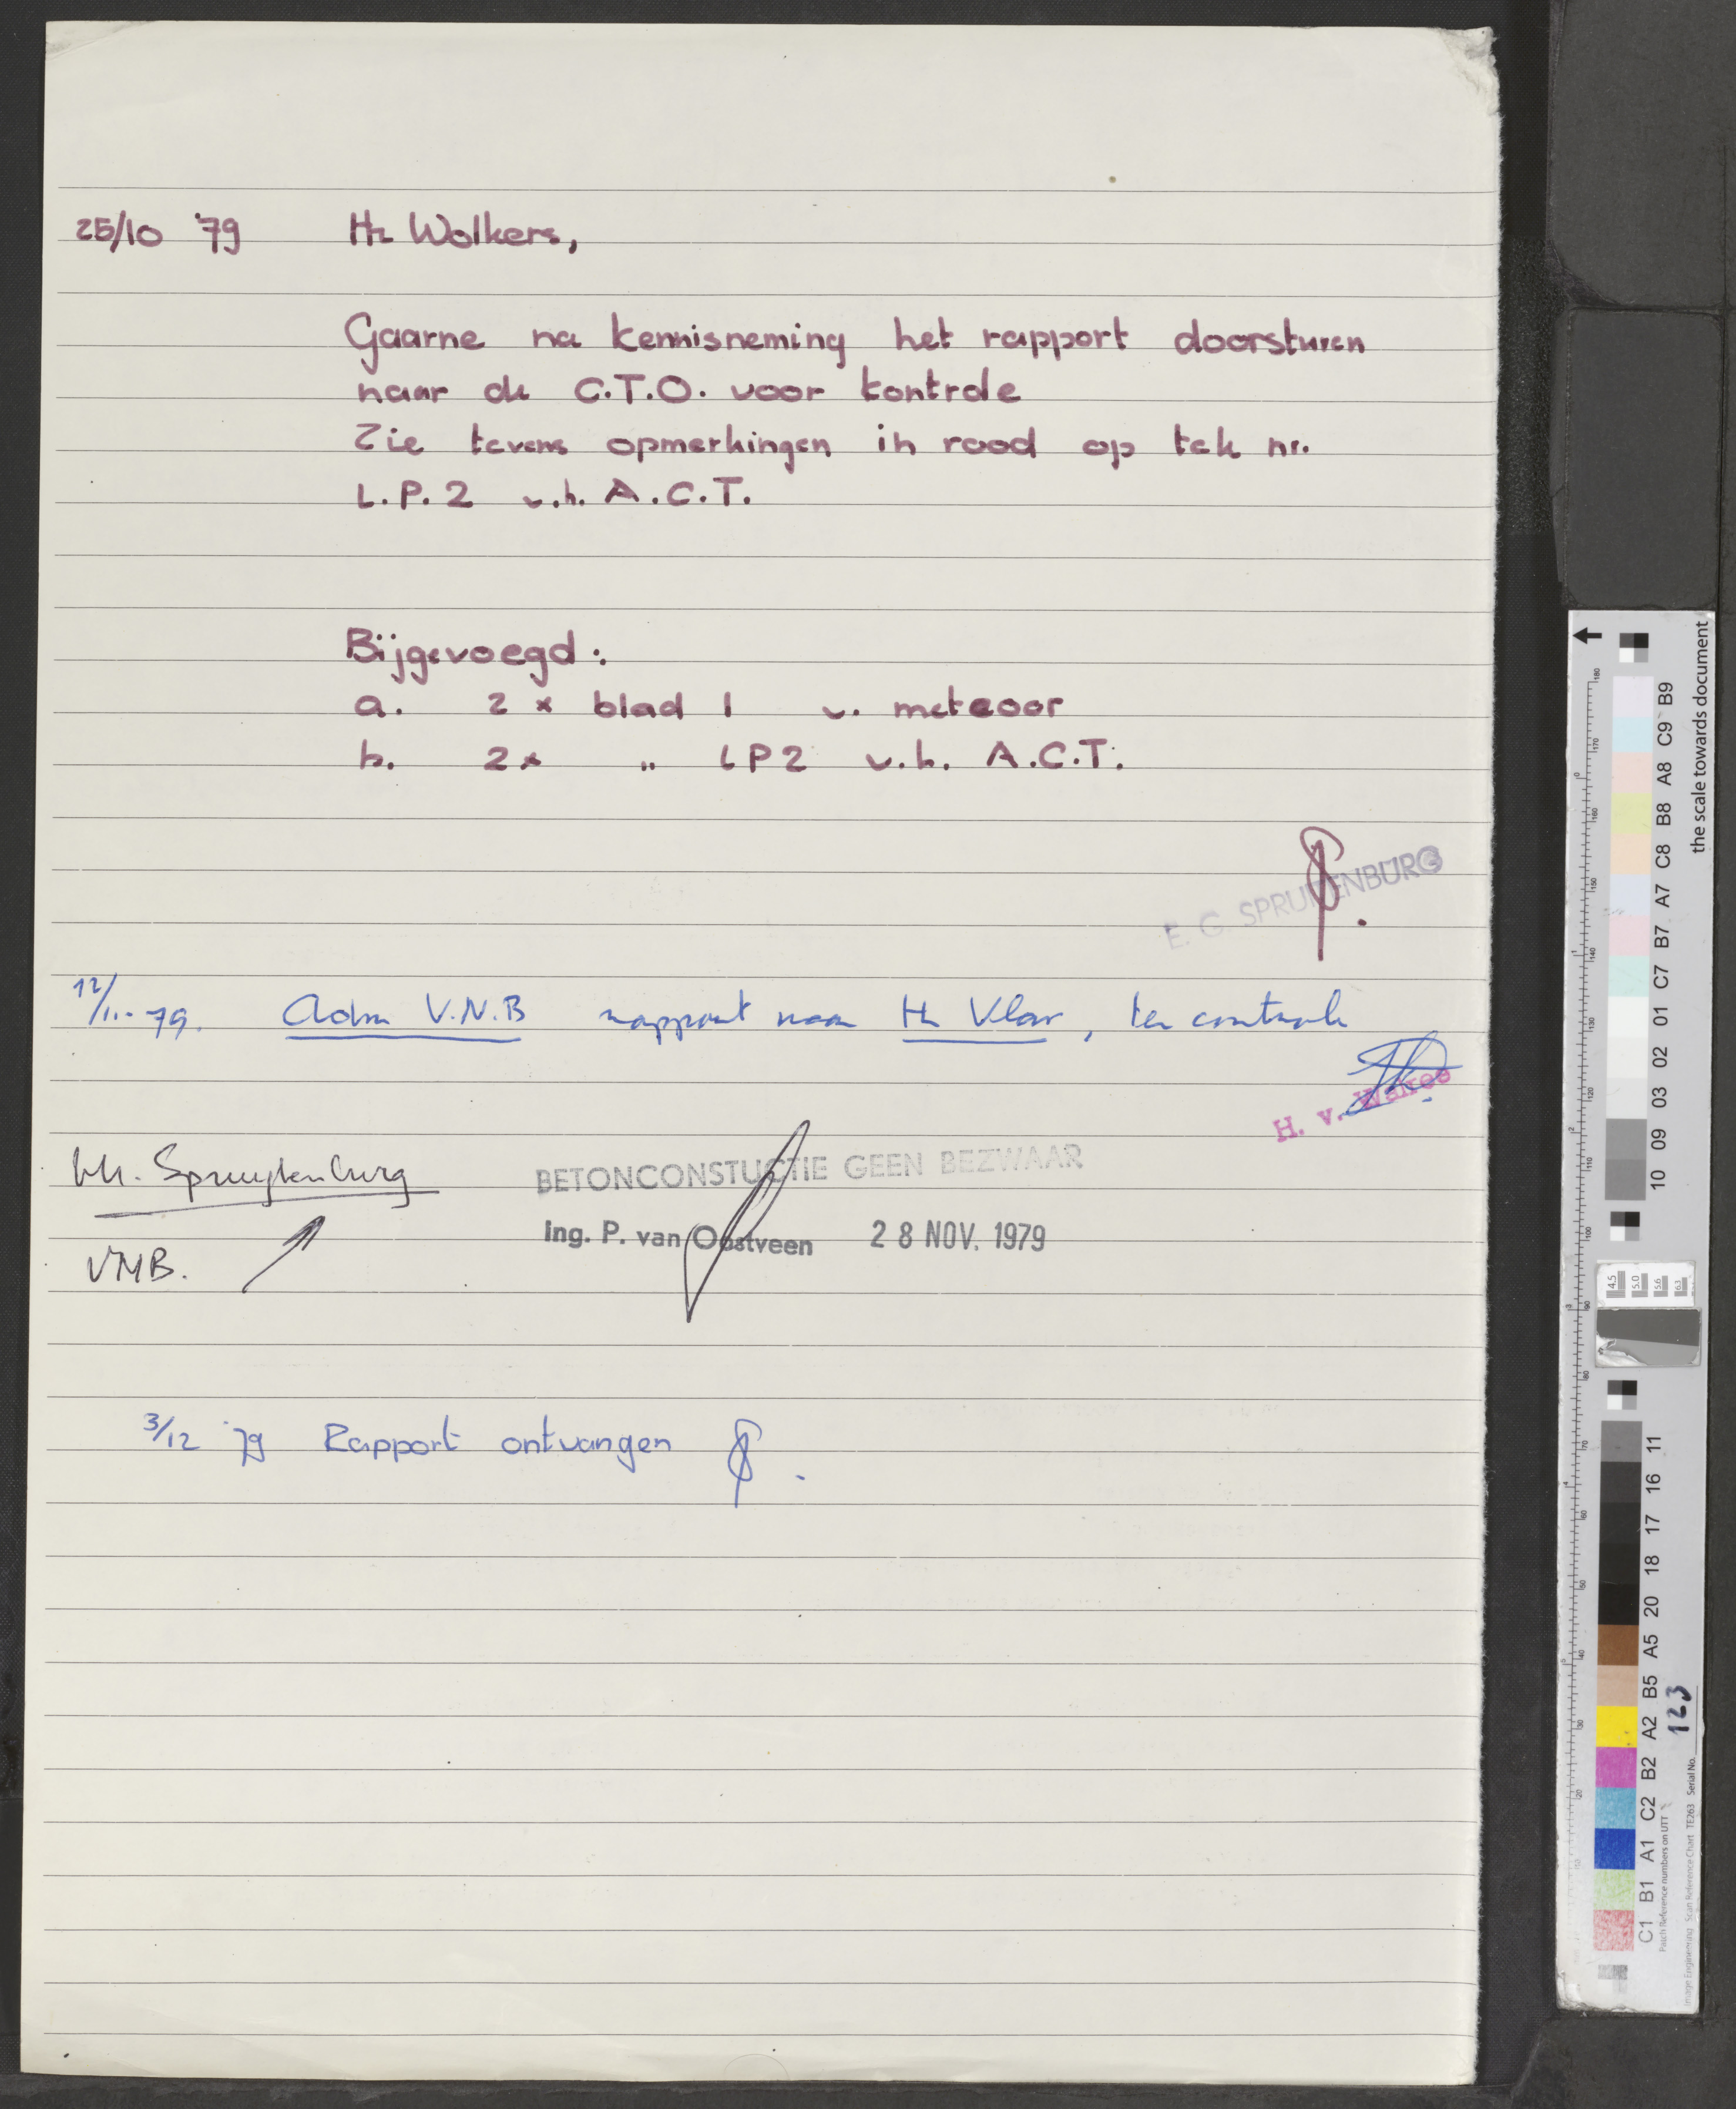 25/10 '79 Hr Wolkers,
Gaarne na kennisneming het rapport doorsturen
naar de C.T.O. voor kontrole
Zie tevens opmerkingen in rood op tek nr.
L.P.2 v.h. A.C.T.
Bijgevoegd:
a. 2 x blad 1 v. meteoor
b. 2x " LP2 v.h. A.C.T.
E. G. SPRUITENBURG
12/11-79. Adm V.N.B rapport naar Hr Vlar, ter controle
H. v.
Hr. Spruytenburg
BETONCONSTUCTIE GEEN BEZWAAR
Ing. P. van Oostveen 28 NOV. 1979
VNB.
3/12 '79 Rapport ontvangen
the scale towards document
C1 B1 A1 C2 B2 A2 B5 A5 20 18 17 16 11
10 09 03 02 01 C7 B7 A7 C8 B8 A8 C9 B9
Patch Reference numbers on UTT
Image Engineering Scan Reference Chart TE263 Serial No. 123